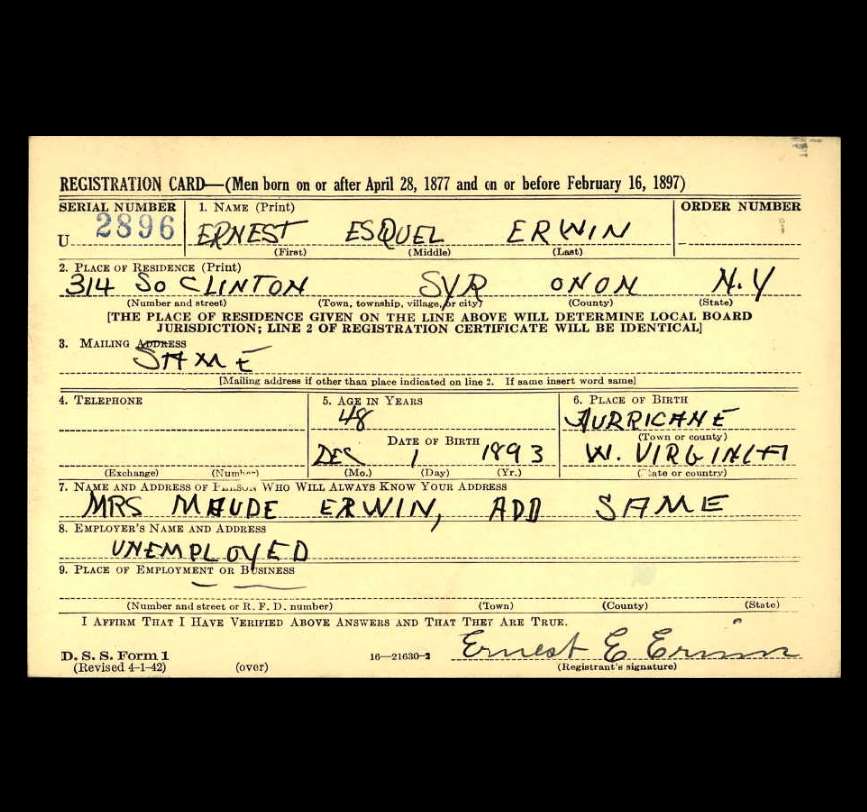 REGISTRATION CARD—(Men born on or after April 28, 1877 and on or before February 16, 1897)
SERIAL NUMBER 1. NAME (Print) ORDER NUMBER
U 2896 ERNEST ESQUEL ERWIN
(First) (Middle) (Last)
2. PLACE OF RESIDENCE (Print)
314 SO CLINTON SYR ONON N.Y
(Number and street) (Town, township, village, or city) (County) (State)
[THE PLACE OF RESIDENCE GIVEN ON THE LINE ABOVE WILL DETERMINE LOCAL BOARD
JURISDICTION; LINE 2 OF REGISTRATION CERTIFICATE WILL BE IDENTICAL]
3. MAILING ADDRESS
SAME
[Mailing address if other than place indicated on line 2. If same insert word same]
4. TELEPHONE 5. AGE IN YEARS 6. PLACE OF BIRTH
48 HURRICANE
DATE OF BIRTH (Town or county)
DEC 1 1893 W. VIRGINIA
(Exchange) (Number) (Mo.) (Day) (Yr.) (State or country)
7. NAME AND ADDRESS OF PERSON WHO WILL ALWAYS KNOW YOUR ADDRESS
MRS MAUDE ERWIN, ADD SAME
8. EMPLOYER'S NAME AND ADDRESS
UNEMPLOYED
9. PLACE OF EMPLOYMENT OR BUSINESS
(Number and street or R. F. D. number) (Town) (County) (State)
I AFFIRM THAT I HAVE VERIFIED ABOVE ANSWERS AND THAT THEY ARE TRUE.
D. S. S. Form 1 Ernest E Erwin
(Revised 4-1-42) (over) 16—21630-2 (Registrant's signature)